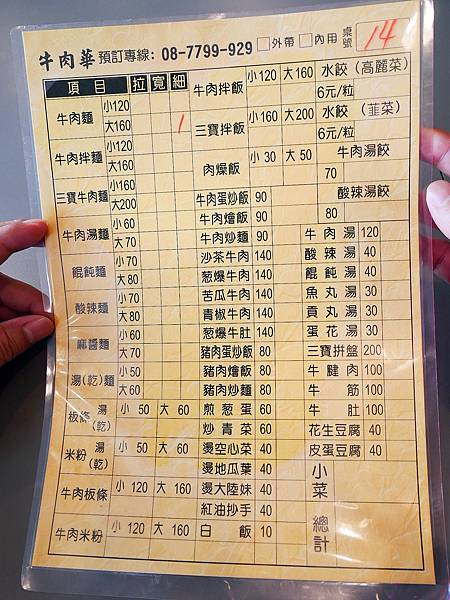 牛肉華 預訂專線: 08-7799-929 □外帶 □內用 桌號 14
項目 拉 寬 細
牛肉麵 小120
大160 1
牛肉拌麵 小120
大160
三寶牛肉麵 小160
大200
牛肉湯麵 小60
大70
餛飩麵 小70
大80
酸辣麵 小70
大80
麻醬麵 小60
大70
湯(乾)麵 小50
大60
板條 湯(乾) 小 50 大 60
米粉 湯(乾) 小 50 大 60
牛肉板條 小 120 大 160
牛肉米粉 小 120 大 160
牛肉拌飯 小 120 大 160
三寶拌飯 小 160 大 200
肉燥飯 小 30 大 50
牛肉蛋炒飯 90
牛肉燴飯 90
牛肉炒麵 90
沙茶牛肉 140
葱爆牛肉 140
苦瓜牛肉 140
青椒牛肉 140
葱爆牛肚 140
豬肉蛋炒飯 80
豬肉燴飯 80
豬肉炒麵 80
煎葱蛋 60
炒青菜 60
燙空心菜 40
燙地瓜葉 40
燙大陸妹 40
紅油抄手 40
白飯 10
水餃(高麗菜)
6元/粒
水餃(韮菜)
6元/粒
牛肉湯餃
70
酸辣湯餃
80
牛肉湯 120
酸辣湯 40
餛飩湯 40
魚丸湯 30
貢丸湯 30
蛋花湯 30
三寶拼盤 200
牛腱肉 100
牛筋 100
牛肚 100
花生豆腐 40
皮蛋豆腐 40
小菜
總計